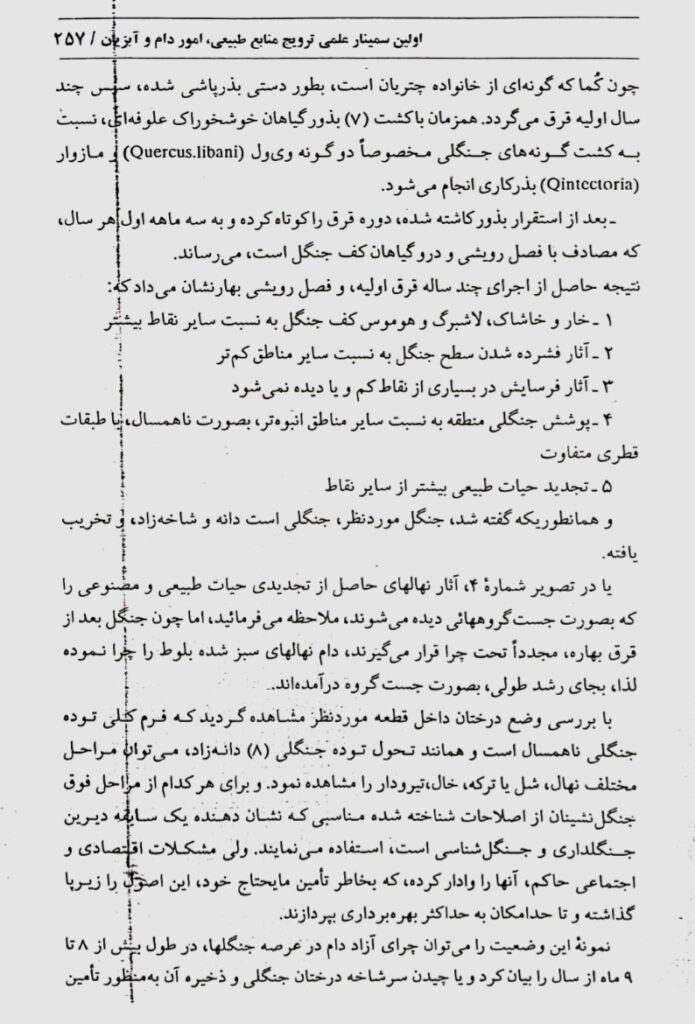 اولین سمینار علمی ترویج منابع طبیعی، امور دام و آبزیان / ۲۵۷
چون کُما که گونه‌ای از خانواده چتریان است، بطور دستی بذرپاشی شده، سپس چند
سال اولیه قرق می‌گردد. همزمان با کشت (۷) بذور گیاهان خوشخوراک علوفه‌ای، نسبت
به کشت گونه‌های جنگلی مخصوصاً دو گونه وی‌ول (Quercus.libani) و مازوار
(Qintectoria) بذرکاری انجام می‌شود.
ـ بعد از استقرار بذور کاشته شده، دوره قرق را کوتاه کرده و به سه ماهه اول هر سال،
که مصادف با فصل رویشی و درو گیاهان کف جنگل است، می‌رساند.
نتیجه حاصل از اجرای چند ساله قرق اولیه، و فصل رویشی بهار نشان می‌داد که:
۱ ـ خار و خاشاک، لاشبرگ و هوموس کف جنگل به نسبت سایر نقاط بیشتر
۲ ـ آثار فشرده شدن سطح جنگل به نسبت سایر مناطق کم‌تر
۳ ـ آثار فرسایش در بسیاری از نقاط کم و یا دیده نمی‌شود
۴ ـ پوشش جنگلی منطقه به نسبت سایر مناطق انبوه‌تر، بصورت ناهمسال، با طبقات
قطری متفاوت
۵ ـ تجدید حیات طبیعی بیشتر از سایر نقاط
و همانطوریکه گفته شد، جنگل موردنظر، جنگلی است دانه و شاخه‌زاد، و تخریب
یافته.
یا در تصویر شمارهٔ ۴، آثار نهالهای حاصل از تجدیدی حیات طبیعی و مصنوعی را
که بصورت جست‌گروههائی دیده می‌شوند، ملاحظه می‌فرمائید، اما چون جنگل بعد از
قرق بهاره، مجدداً تحت چرا قرار می‌گیرند، دام نهالهای سبز شده بلوط را چرا نموده
لذا، بجای رشد طولی، بصورت جست گروه درآمده‌اند.
با بررسی وضع درختان داخل قطعه موردنظر مشاهده گردید که فرم کلی توده
جنگلی ناهمسال است و همانند تحول توده جنگلی (۸) دانه‌زاد، می‌توان مراحل
مختلف نهال، شل یا ترکه، خال،تیرودار را مشاهده نمود. و برای هر کدام از مراحل فوق
جنگل‌نشینان از اصلاحات شناخته شده مناسبی که نشان دهنده یک سابقه دیرین
جنگلداری و جنگل‌شناسی است، استفاده می‌نمایند. ولی مشکلات اقتصادی و
اجتماعی حاکم، آنها را وادار کرده، که بخاطر تأمین مایحتاج خود، این اصول را زیرپا
گذاشته و تا حدامکان به حداکثر بهره‌برداری بپردازند.
نمونهٔ این وضعیت را می‌توان چرای آزاد دام در عرصه جنگلها، در طول بیش از ۸ تا
۹ ماه از سال را بیان کرد و یا چیدن سرشاخه درختان جنگلی و ذخیره آن به‌منظور تأمین